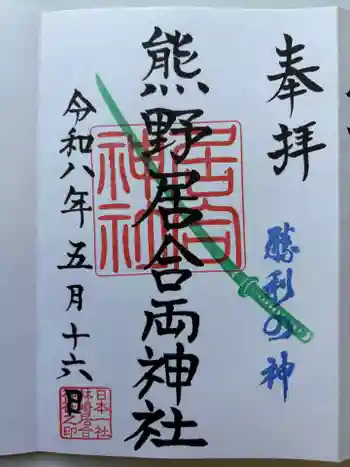 奉拝
勝利の神
熊野居合両神社
居合
神社
令和八年五月十六日
日本一社
林崎居合
神社之印